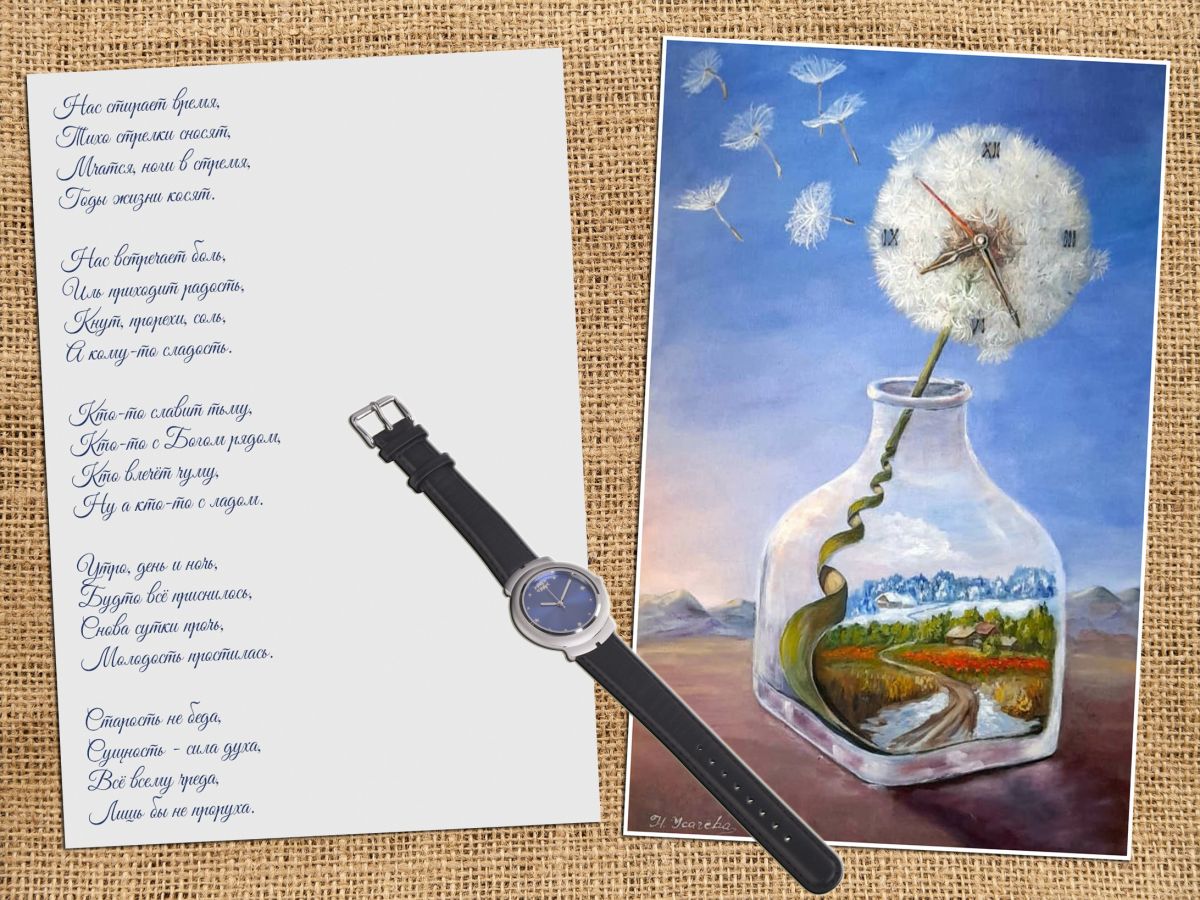 Нас стирает время,
Тихо стрелки сносят,
Мчатся, ноги в стремя,
Годы жизни косят.

Нас встречает боль,
Иль приходит радость,
Кнут, прорехи, соль,
А кому-то сладость.

Кто-то славит тьму,
Кто-то с Богом рядом,
Кто влечёт чуму,
Ну а кто-то с ладом.

Утро, день и ночь,
Будто всё приснилось,
Снова сутки прочь,
Молодость простилась.

Старость не беда,
Сущность - сила духа,
Всё всему чреда,
Лишь бы не проруха.

XII
IX
III
VI
Н. Усачева